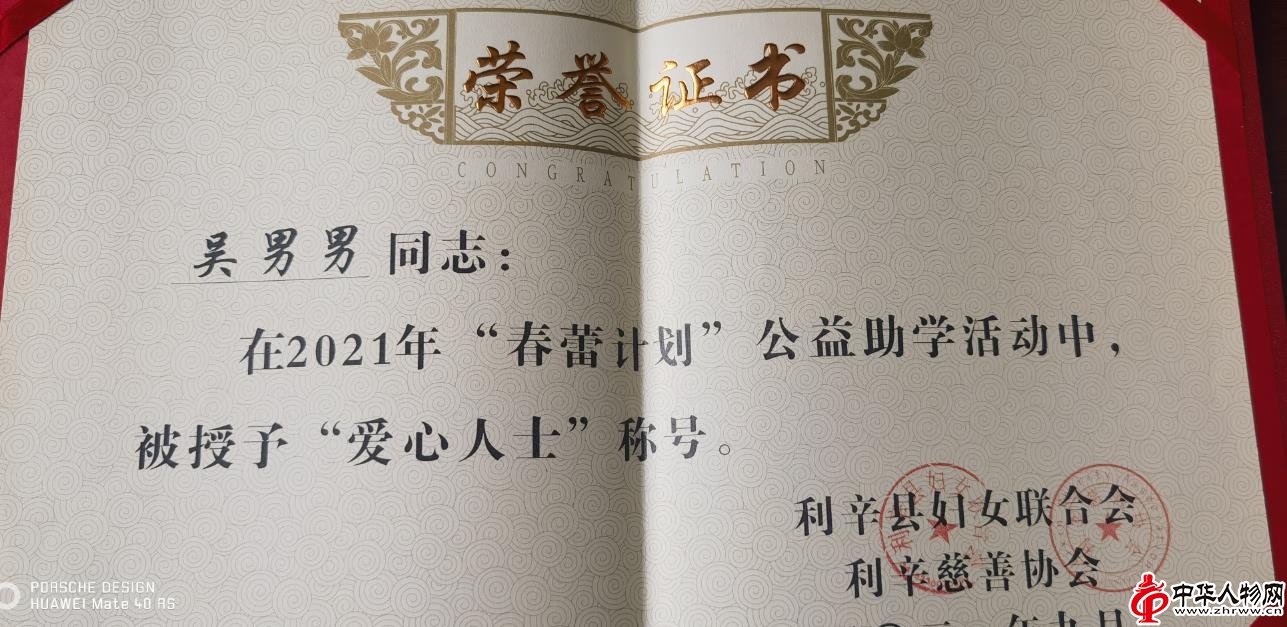 荣誉证书
CONGRATULATION
吴男男同志：
在2021年“春蕾计划”公益助学活动中，
被授予“爱心人士”称号。
利辛县妇女联合会
利辛慈善协会
PORSCHE DESIGN
HUAWEI Mate 40 RS
中华人物网
www.zhrww.cn